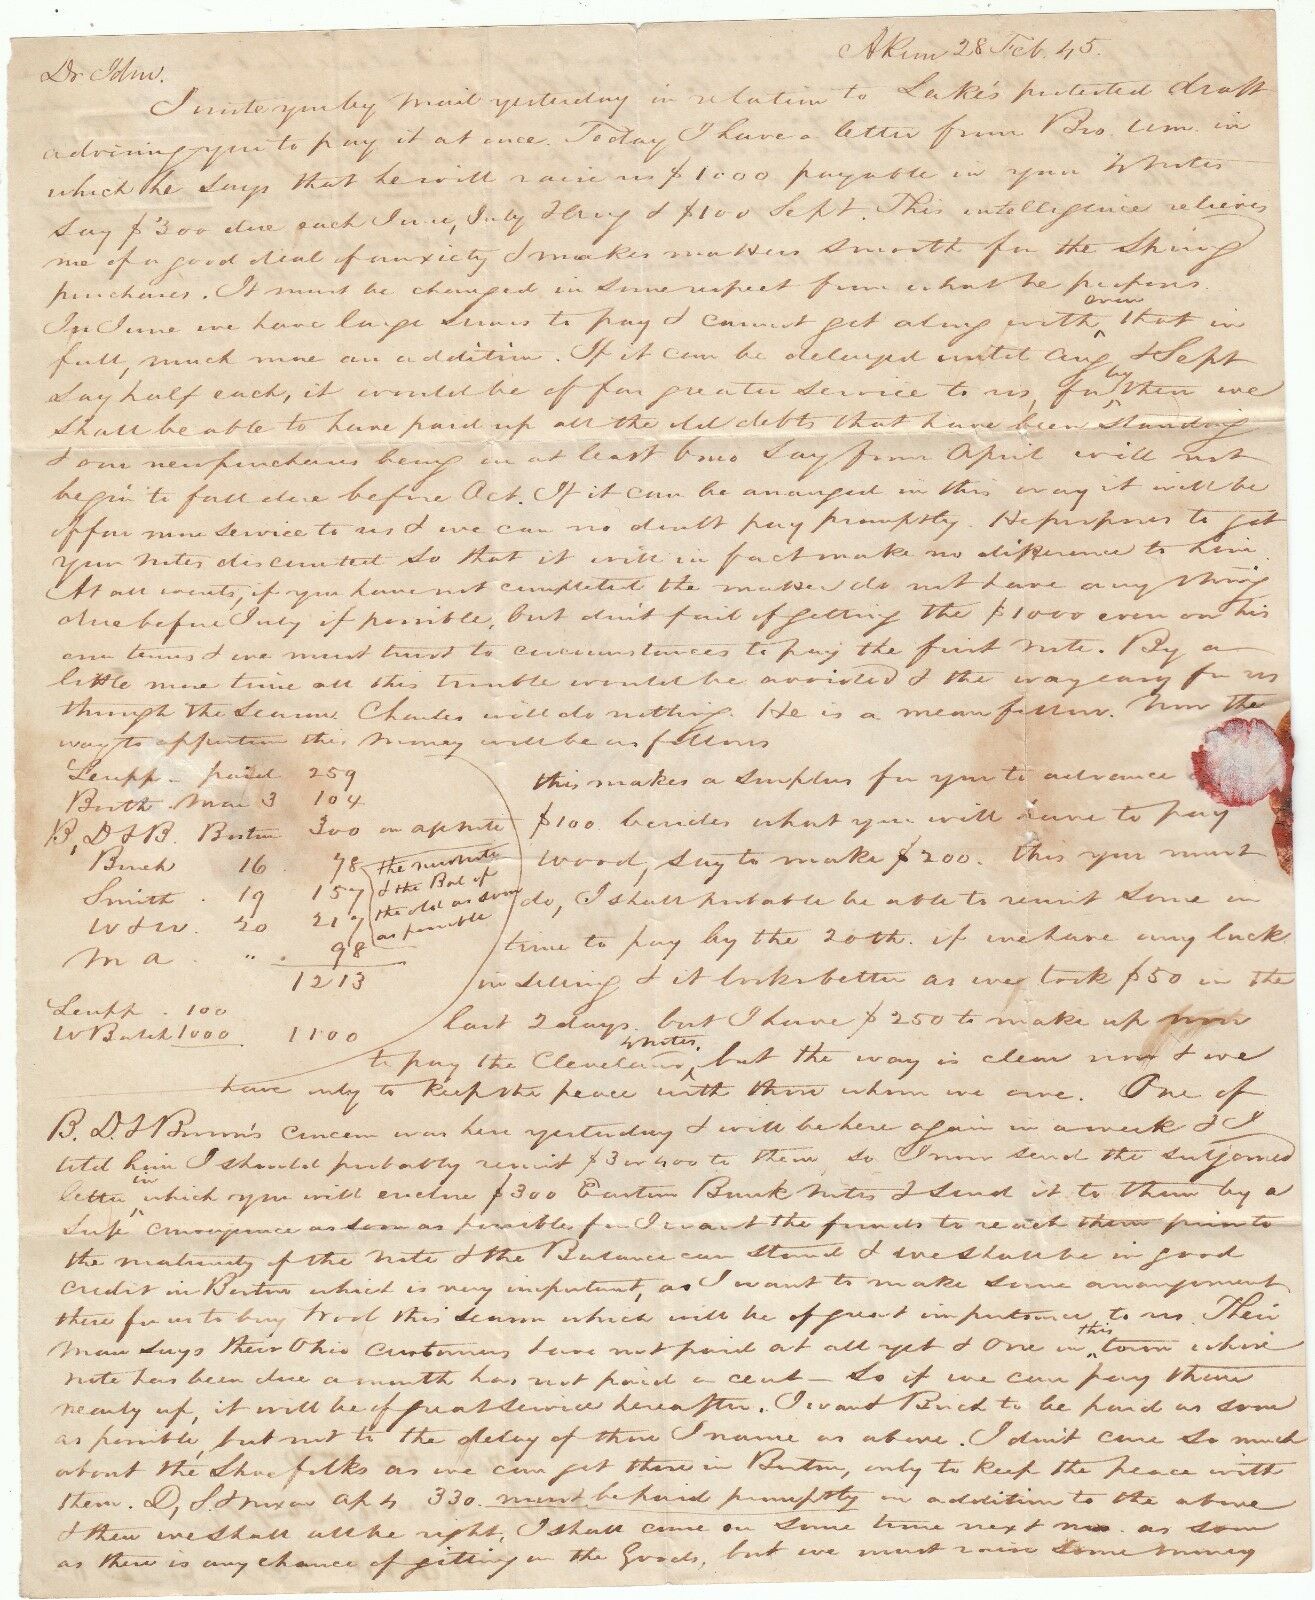 Akron 28 Feb. 45.
Dr John.
I wrote you by mail yesterday in relation to Lake's protested draft
advising you to pay it at once. Today I have a letter from Bro. Wm. in
which he says that he will raise us $1000 payable in your 4 notes
say $300 due each June, July & Aug & $100 Sept. This intelligence relieves
me of a good deal of anxiety & makes matters smooth for the Spring
purchases. It must be changed in some respect from what he proposes.
In June we have large sums to pay & cannot get along with even that in
full, much more an addition. If it can be delayed until Aug & Sept
say half each, it would be of far greater service to us, for by then we
shall be able to have paid up all the old debts that have been standing
& our new purchases being on at least 6 mo say from April will not
begin to fall due before Oct. If it can be arranged in this way it will be
of far more service to us & we can no doubt pay promptly. He proposes to get
your notes discounted so that it will in fact make no difference to him.
At all events, if you have not completed the matter do not have any thing
due before July if possible, but don't fail of getting the $1000 even on his
own terms & we must trust to circumstances to pay the first note. By a
little more time all this trouble would be avoided & the way easy for us
through the season. Charles will do nothing. He is a mean fellow. Now the
way to apportion this money will be as follows
Leupp - paid 259
Booth. Mar 3 104
B, D & B. Boston 300 on ap note
Birch 16 78
Smith. 19 157
W & W. 20 217
M A. " . 98
1213
the new note
& the Bal of
the old as soon
as possible
Leupp . 100
W Balch 1000 1100
this makes a surplus for you to advance
$100 besides what you will have to pay
Wood, say to make $200. this you must
do, I shall probable be able to remit some in
time to pay by the 20th. if we have any luck
in selling & it looks better as we took $50 in the
last 2 days. but I have $250 to make up now
to pay the Cleveland notes, but the way is clear now & we
have only to keep the peace with those whom we owe. One of
B. D. & Brown's concern was here yesterday & will be here again in a week & I
told him I should probably remit $3 or 400 to them, so I now send the subjoined
letter in which you will enclose $300 Eastern Bank notes & send it to them by a
safe conveyance as soon as possible for I want the funds to reach them prior to
the maturity of the note & the Balance can stand & we shall be in good
credit in Boston which is very important, as I want to make some arrangement
there for us to buy there this season which will be of great importance to us. Their
man says their Ohio customers have not paid at all yet & one in this town whose
note has been due a month has not paid a cent — So if we can pay them
nearly up, it will be of great service hereafter. I want Birch to be paid as soon
as possible, but not to the delay of those I name as above. I don't care so much
about the Shoe folks as we can get those in Boston, only to keep the peace with
them. D, S & Nixon Ap 4 330. must be paid promptly in addition to the above
& then we shall all be right. I shall come on some time next mo. as soon
as there is any chance of getting on the Goods, but we must raise some money